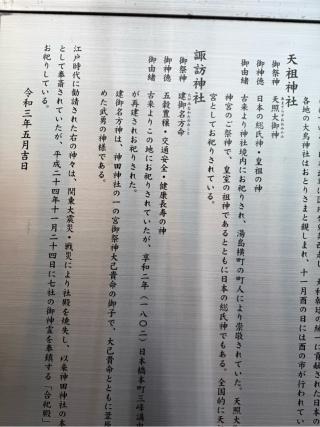 各地の大鳥神社はおとりさまと親しまれ、十一月酉の日には酉の市が行われてい
天祖神社
御祭神　天照大御神
御神徳　日本の総氏神・皇祖の神
御由緒　古来より神社境内にお祀りされ、湯島横町の町人により崇敬されていた。天照大
神宮のご祭神で、皇室の祖神であるとともに日本の総氏神でもある。全国的に天
宮としてお祀りされている。
諏訪神社
御祭神　建御名方命
御神徳　五穀豊穣・交通安全・健康長寿の神
御由緒　古来よりこの地にお祀りされていたが、享和二年（一八〇二）日本橋本町三
が再建されお祀りされた。
建御名方神は、神田神社の一の宮御祭神大己貴命の御子で、大己貴命とともに
めた武勇の神様である。
江戸時代に勧請された右の神々は、関東大震災・戦災により社殿を焼失し、以来神田神社の本
として奉斎されていたが、平成二十四年十一月二十四日に七社の御神霊を奉鎮する「合祀殿」
お祀りしている。
令和三年五月吉日